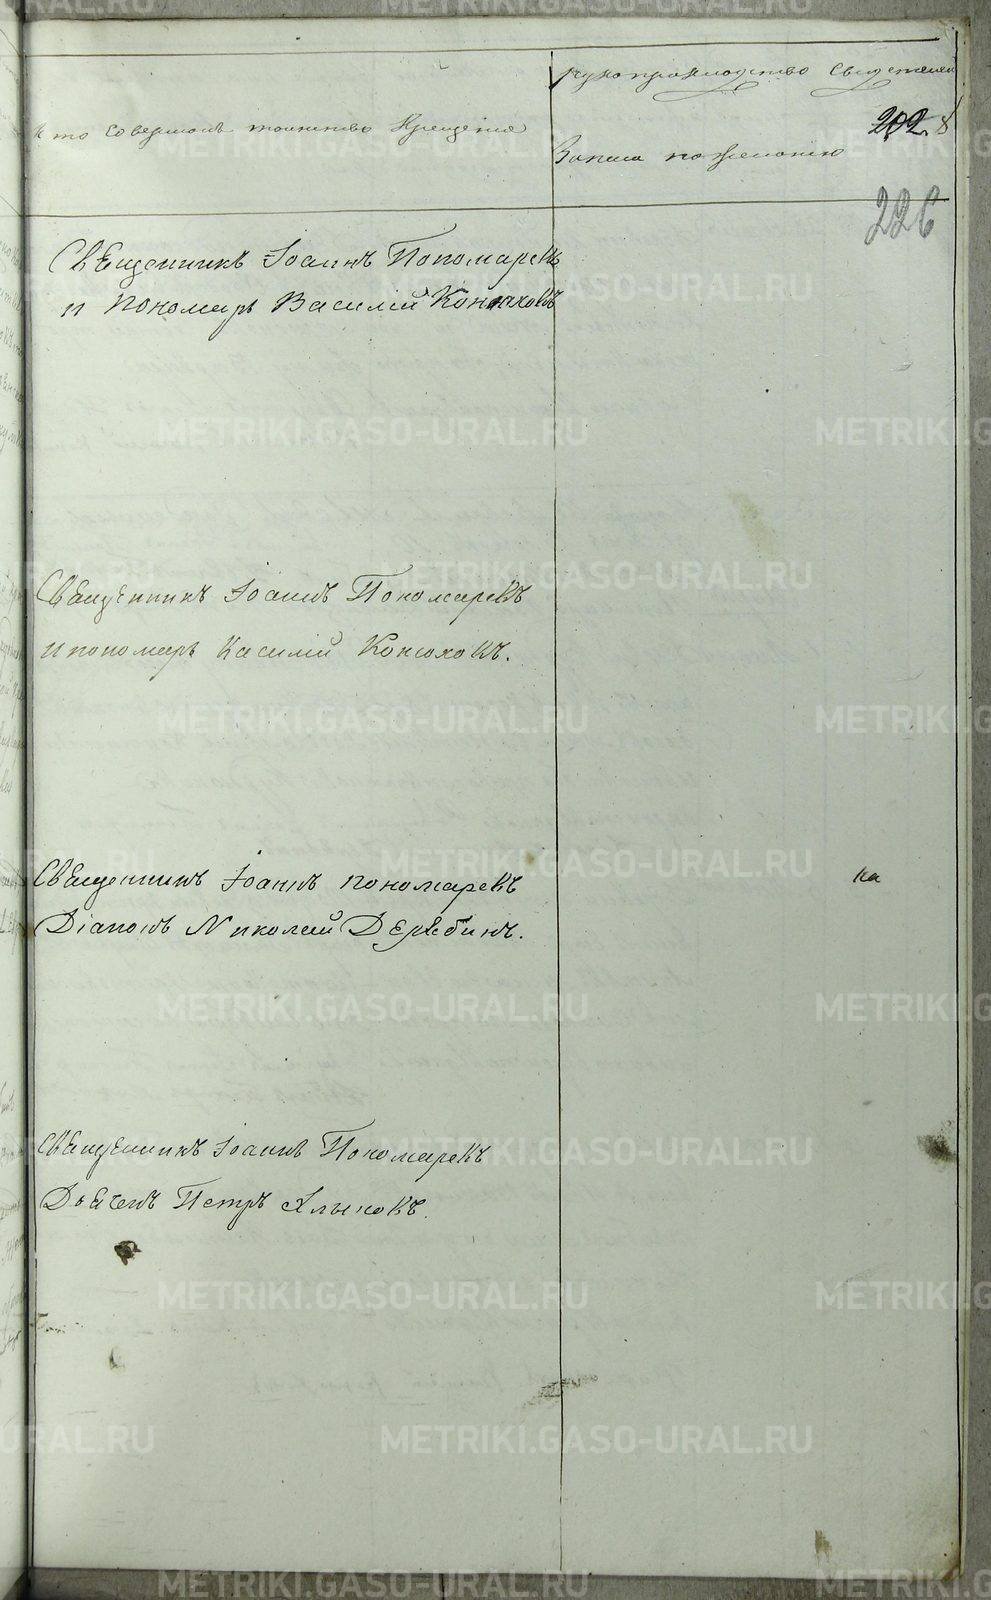 Кто совершалъ таинство Крещенія
рукоприкладство свидѣтелей
записи по желанію
202.
226
Священникъ Іоаннъ Пономаревъ
и Пономарь Василій Конюховъ
Священникъ Іоаннъ Пономаревъ
и пономарь Василій Конюховъ.
Священникъ Іоаннъ Пономаревъ
Діаконъ Николай Дерябинъ.
на
Священникъ Іоаннъ Пономаревъ
Дьячекъ Петръ Хлыновъ.
METRIKI.GASO-URAL.RU